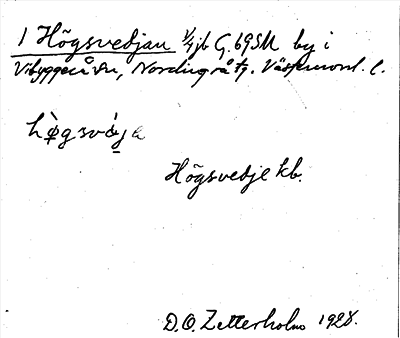 1 Högsvedjan 1/4 jb G. 69 SM by i
Vibyggerå sn, Nordingrå tg. Västernorrl. l.
hø̀gsvǽja
Högsvedje kb.
D. O. Zetterholm 1928.